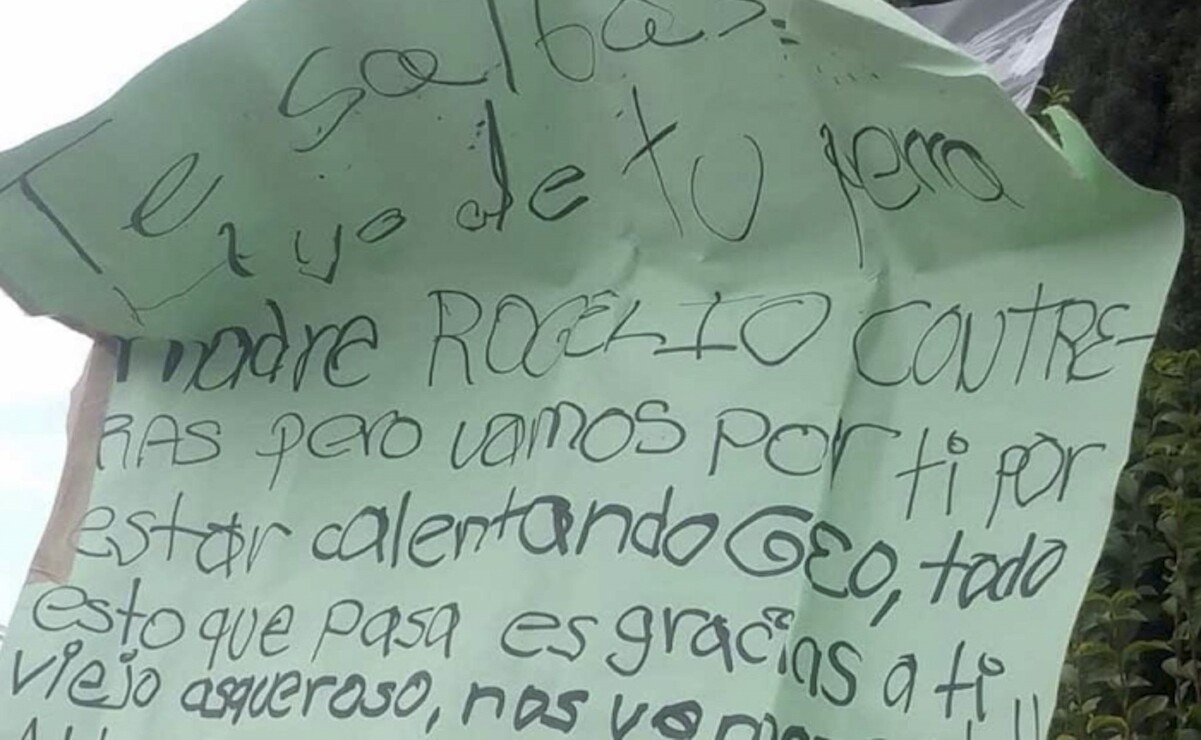 salbas
Te, yo de tu perra
madre ROGELIO CONTRE-
RAS pero vamos por ti por
estar calentando GEO, todo
esto que pasa es gracias a ti
viejo asqueroso, nos vemos